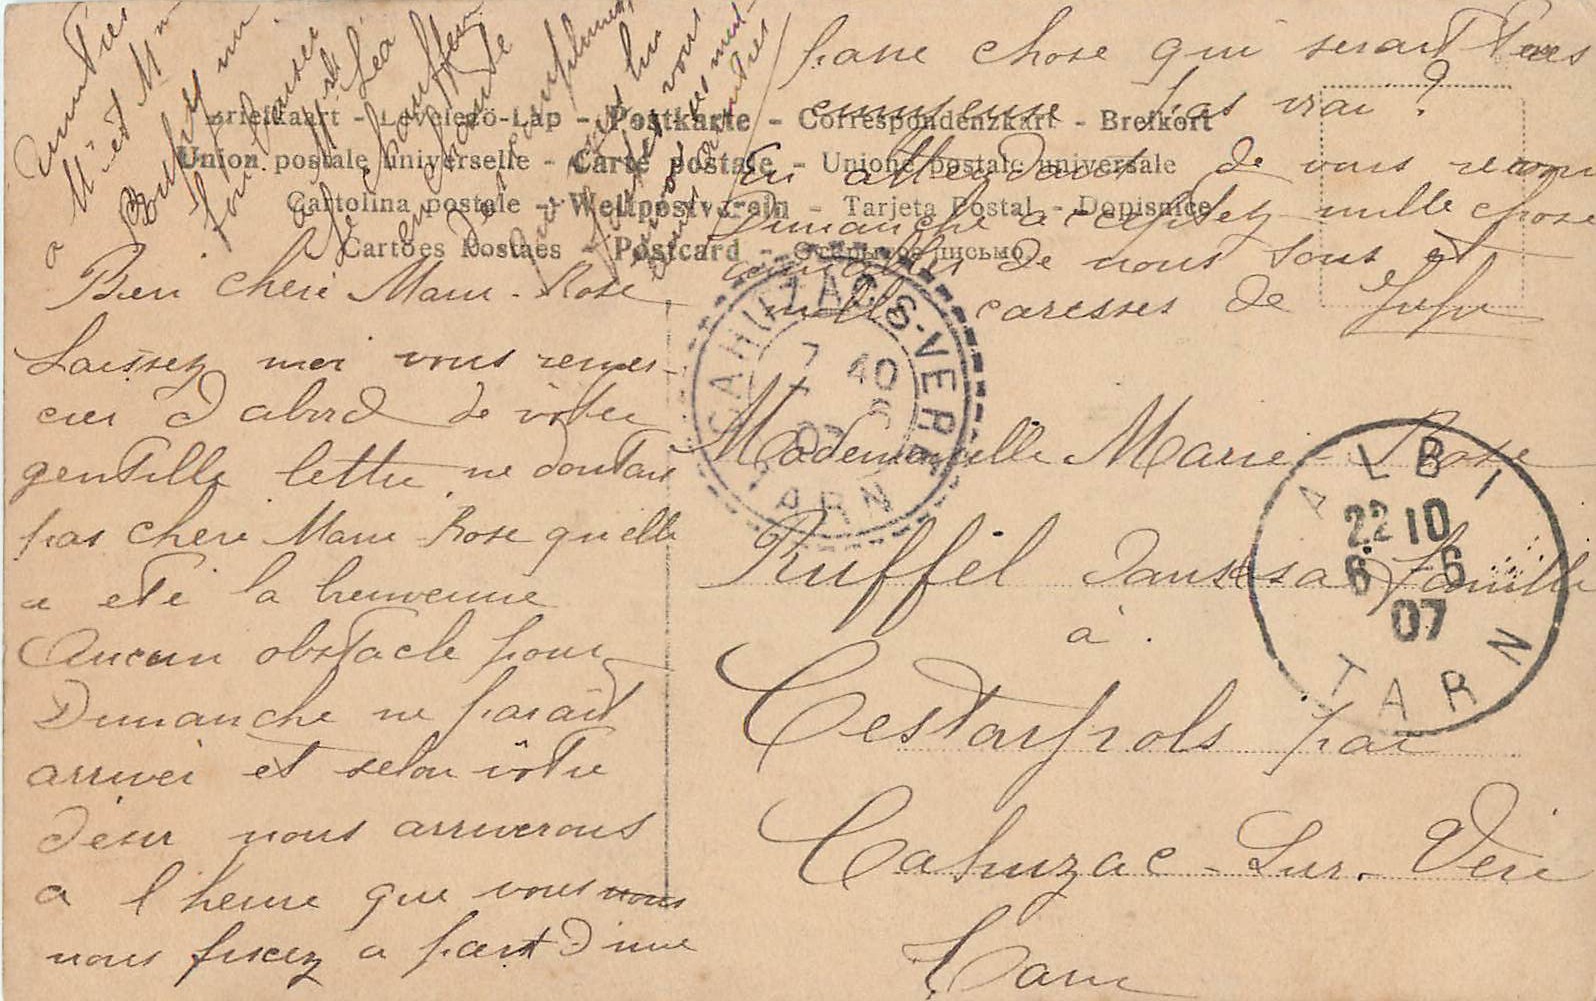 Brefkaart - Levelező-Lap - Postkarte - Correspondenzkart - Brefkort
Union postale universelle - Carte postale - Unione postale universale
Cartolina postale - Weltpostverein - Tarjeta Postal - Dopisnice
Cartões Postaes - Postcard - Открытое письмо
Bien chere Marie-Rose
Laissez moi vous remer-
cier d'abord de vôtre
gentille lettre, ne doutais
pas chere Marie-Rose qu'elle
a eté la bienvenue
Aucun obstacle pour
Dimanche ne parait
arriver et selon vôtre
desir nous arriverons
a l'heure que vous nous
nous fixez a part d'une
panne chose qui serait tres
ennuyeuse pas vrai ?
En attendant de vous revoir
Dimanche acceptez mille chose
aimables de nous tous et
mille caresses de Fifi
amities
a Mr et Mme
Mademoiselle Marie-Rose
Ruffel dans sa famille
à
Cestayrols par
Cahuzac-Sur-Vère
Tarn
CAHUZAC-S-VERE
7 40
TARN
ALBI
22 10
6 -6
07
TARN